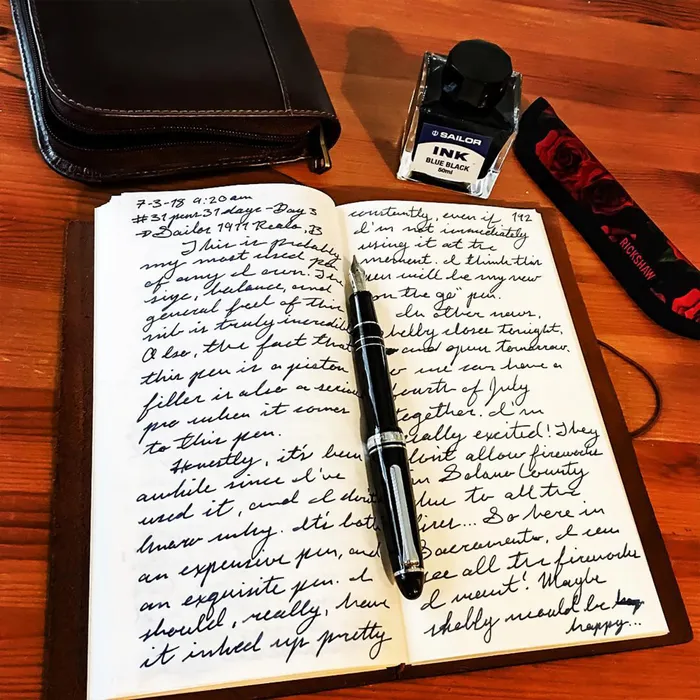 7-3-18 9:20am
#31pens31days - Day 3
Sailor 1911 Realo, B
This is probably
my most used pe
of any I own. The
size, balance, and
general feel of this
nib is truly incredib
Also, the fact that
this pen is a piston
filler is also a serious
pro when it comes
to this pen.
Honestly, it's been
awhile since I've
used it, and I don't
know why. It's both
an expensive pen, and
an exquisite pen. I
should, really, have
it inked up pretty
constantly, even if 192
I'm not immediately
using it at the
moment. I think this
pen will be my new
"on the go" pen.
In other news,
helly closes tonight,
and open tomorrow.
o we can have a
ourth of July
together. I'm
eally excited! They
don't allow fireworks
in Solano County
due to all the
fires... So here in
Sacramento, I can
see all the fireworks
I want! Maybe
shelly would be
happy...
SAILOR
INK
BLUE BLACK
50ml
RICKSHAW